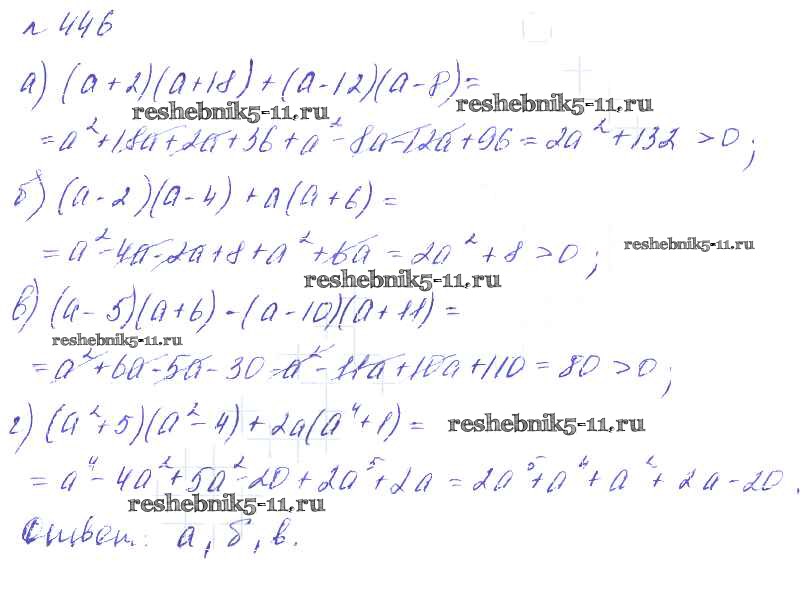 № 446
а) (a+2)(a+18)+(a-12)(a-8)=
reshebnik5-11.ru
reshebnik5-11.ru
= a²+18a+2a+36+a²-8a-12a+96 = 2a²+132 > 0;
б) (a-2)(a-4)+a(a+6) =
= a²-4a-2a+8+a²+6a = 2a²+8 > 0;
reshebnik5-11.ru
reshebnik5-11.ru
в) (a-5)(a+6)-(a-10)(a+11) =
reshebnik5-11.ru
= a²+6a-5a-30-a²-11a+10a+110 = 80 > 0;
г) (a²+5)(a²-4)+2a(a⁴+1) =
reshebnik5-11.ru
= a⁴-4a²+5a²-20+2a⁵+2a = 2a⁵+a⁴+a²+2a-20.
reshebnik5-11.ru
Ответ: а, б, в.